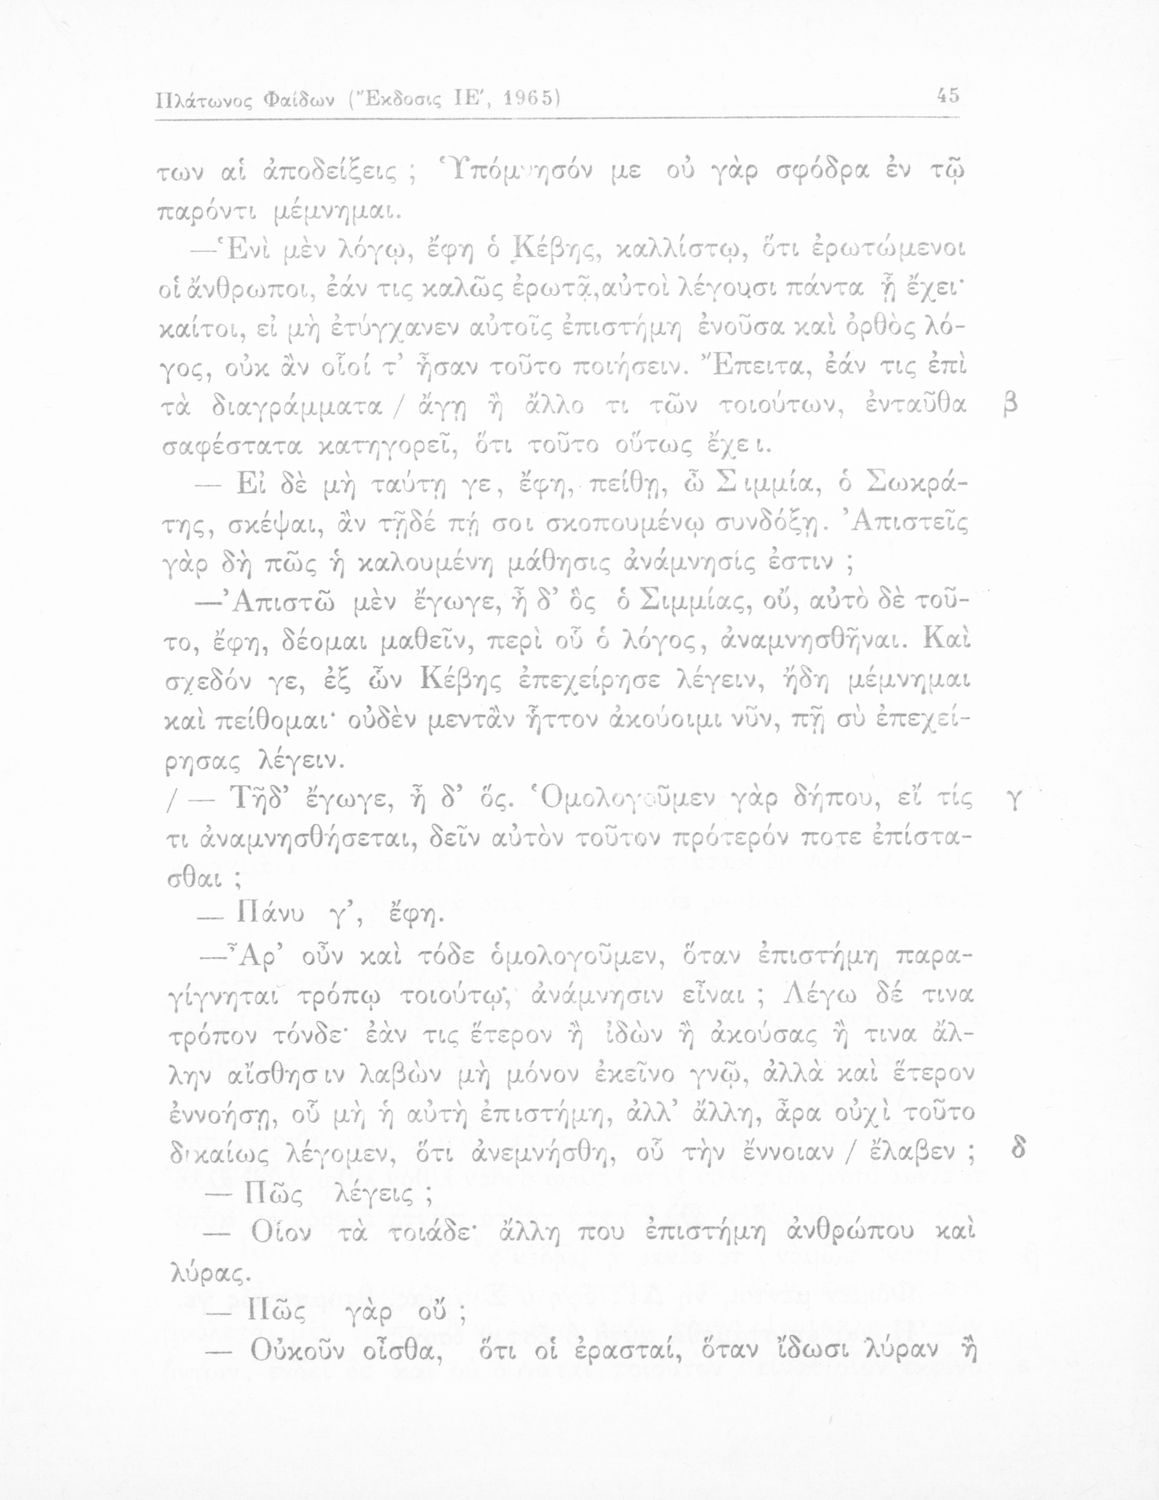 Πλάτωνος Φαίδων (Ἔκδοσις ΙΕ', 1965) 45
των αἱ ἀποδείξεις ; Ὑπόμνησόν με οὐ γὰρ σφόδρα ἐν τῷ
παρόντι μέμνημαι.
—Ἑνὶ μὲν λόγῳ, ἔφη ὁ Κέβης, καλλίστῳ, ὅτι ἐρωτώμενοι
οἱ ἄνθρωποι, ἐάν τις καλῶς ἐρωτᾷ, αὐτοὶ λέγουσι πάντα ᾗ ἔχει·
καίτοι, εἰ μὴ ἐτύγχανεν αὐτοῖς ἐπιστήμη ἐνοῦσα καὶ ὀρθὸς λό-
γος, οὐκ ἂν οἷοί τ' ἦσαν τοῦτο ποιήσειν. Ἔπειτα, ἐάν τις ἐπὶ
τὰ διαγράμματα / ἄγῃ ἢ ἄλλο τι τῶν τοιούτων, ἐνταῦθα β
σαφέστατα κατηγορεῖ, ὅτι τοῦτο οὕτως ἔχει.
— Εἰ δὲ μὴ ταύτῃ γε, ἔφη, πείθῃ, ὦ Σιμμία, ὁ Σωκρά-
της, σκέψαι, ἂν τῇδέ πῄ σοι σκοπουμένῳ συνδόξῃ. Ἀπιστεῖς
γὰρ δὴ πῶς ἡ καλουμένη μάθησις ἀνάμνησίς ἐστιν ;
—Ἀπιστῶ μὲν ἔγωγε, ἦ δ' ὃς ὁ Σιμμίας, οὔ, αὐτὸ δὲ τοῦ-
το, ἔφη, δέομαι μαθεῖν, περὶ οὗ ὁ λόγος, ἀναμνησθῆναι. Καὶ
σχεδόν γε, ἐξ ὧν Κέβης ἐπεχείρησε λέγειν, ἤδη μέμνημαι
καὶ πείθομαι· οὐδὲν μεντἂν ἧττον ἀκούοιμι νῦν, πῇ σὺ ἐπεχεί-
ρησας λέγειν.
/ — Τῇδ' ἔγωγε, ἦ δ' ὅς. Ὁμολογοῦμεν γὰρ δήπου, εἴ τίς γ
τι ἀναμνησθήσεται, δεῖν αὐτὸν τοῦτον πρότερόν ποτε ἐπίστα-
σθαι ;
— Πάνυ γ', ἔφη.
—Ἆρ' οὖν καὶ τόδε ὁμολογοῦμεν, ὅταν ἐπιστήμη παρα-
γίγνηται τρόπῳ τοιούτῳ, ἀνάμνησιν εἶναι ; Λέγω δέ τινα
τρόπον τόνδε· ἐὰν τις ἕτερον ἢ ἰδὼν ἢ ἀκούσας ἢ τινα ἄλ-
λην αἴσθησιν λαβὼν μὴ μόνον ἐκεῖνο γνῷ, ἀλλὰ καὶ ἕτερον
ἐννοήσῃ, οὗ μὴ ἡ αὐτὴ ἐπιστήμη, ἀλλ' ἄλλη, ἆρα οὐχὶ τοῦτο
δικαίως λέγομεν, ὅτι ἀνεμνήσθη, οὗ τὴν ἔννοιαν / ἔλαβεν ; δ
— Πῶς λέγεις ;
— Οἷον τὰ τοιάδε· ἄλλη που ἐπιστήμη ἀνθρώπου καὶ
λύρας.
— Πῶς γὰρ οὔ ;
— Οὐκοῦν οἶσθα, ὅτι οἱ ἐρασταί, ὅταν ἴδωσι λύραν ἢ